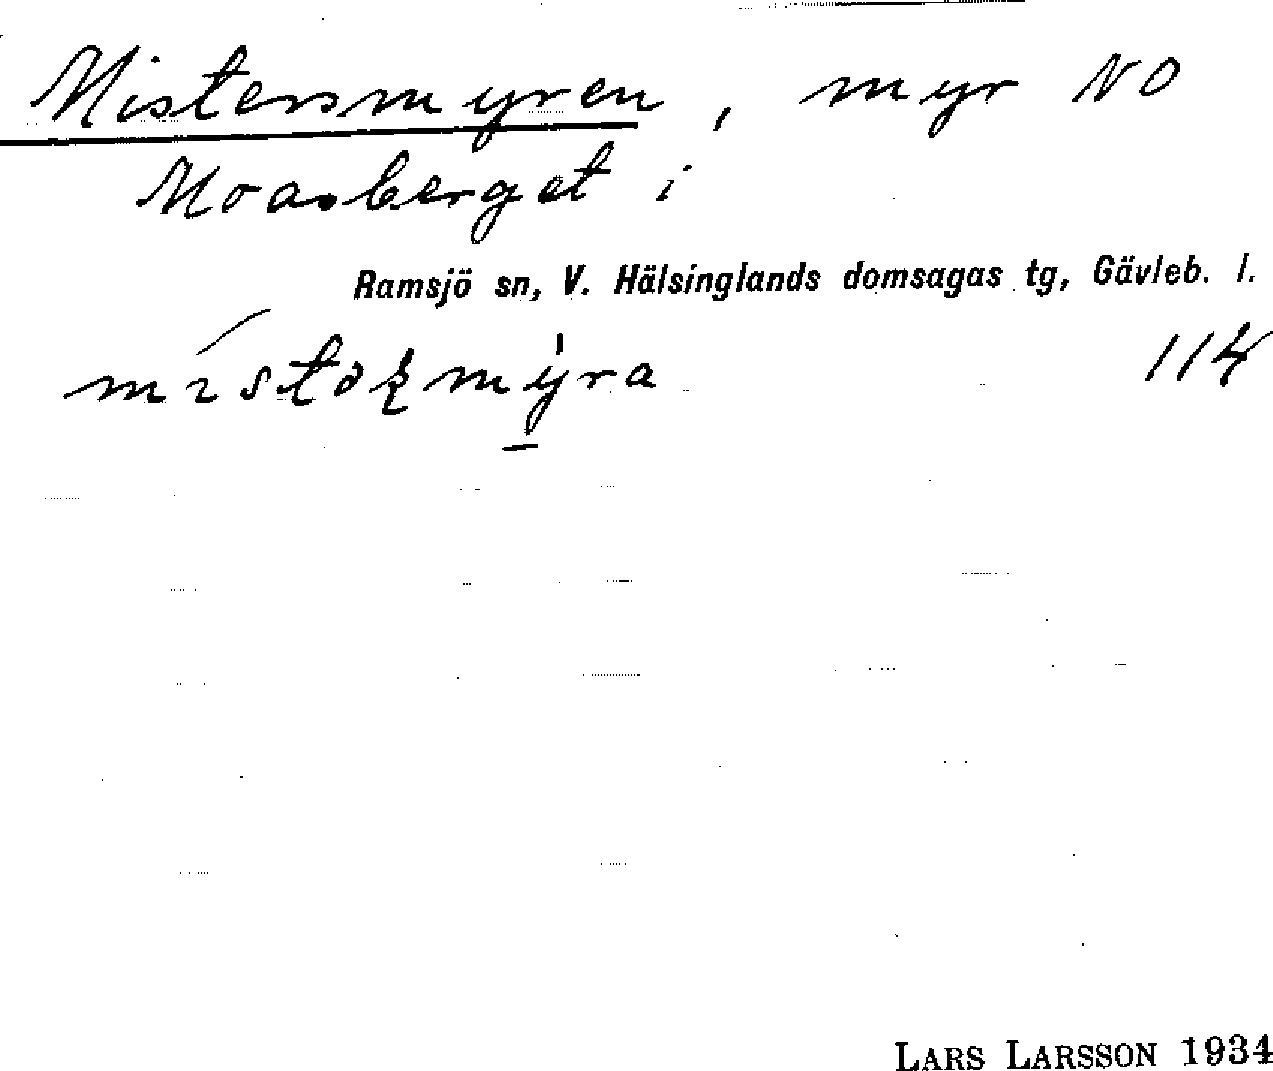 Mistersmyren, myr NO
Moasberget i
Ramsjö sn, V. Hälsinglands domsagas tg, Gävleb. l.
114
LARS LARSSON 1934